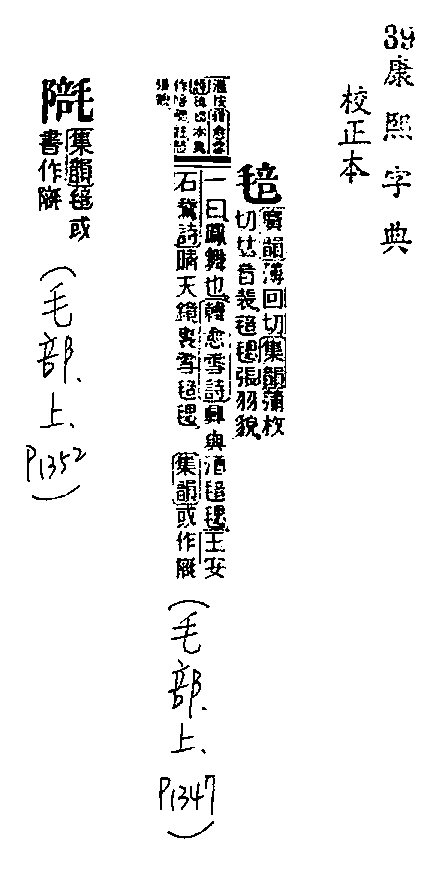 39康熙字典
校正本
毰
廣韻薄回切集韻蒲枚
切𠀤音裴毰毸張羽貌
一曰鳳舞也韓愈雪詩興與酒毰毸王安
石詩晴天鏡裏雪毰毸 集韻或作
(毛部.上.P1347)
集韻毰或
書作
(毛部.上.P1352)